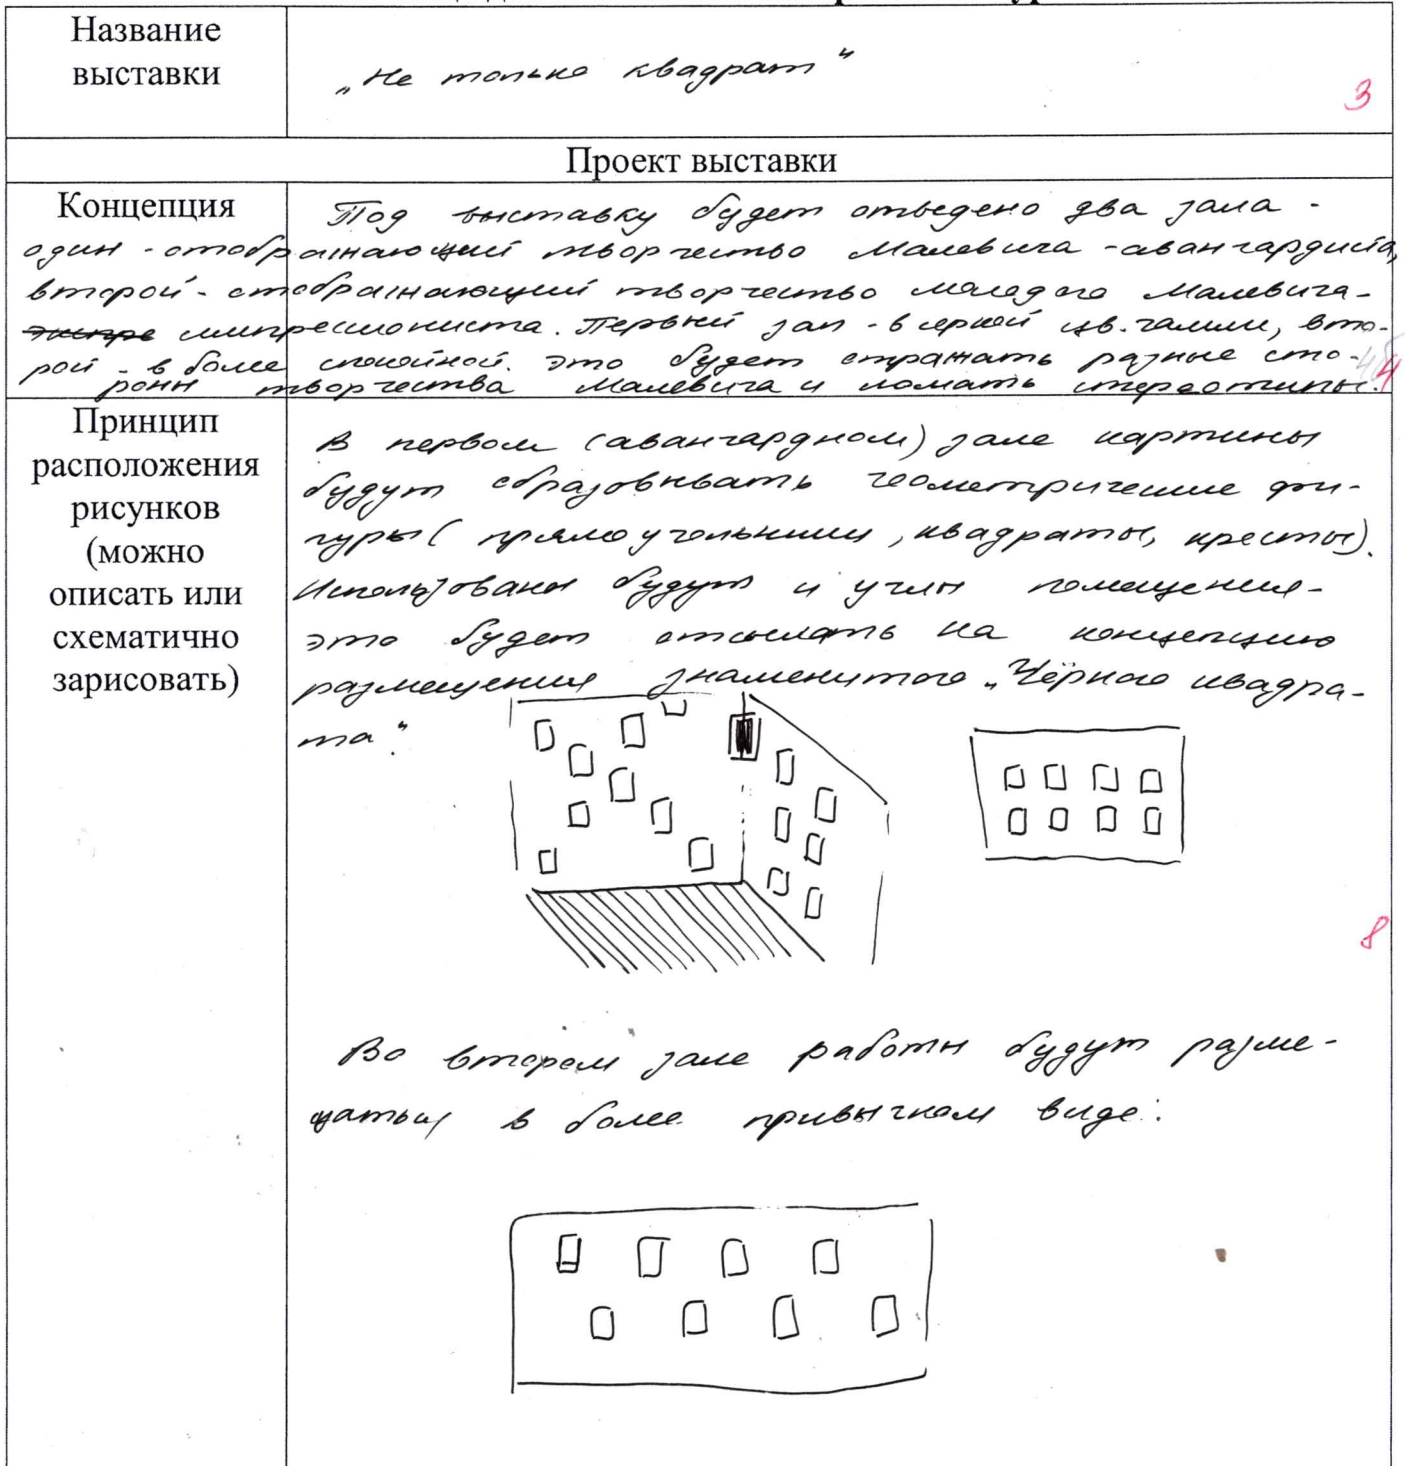 Название
выставки
„Не только квадрат“
3
Проект выставки
Концепция
Под выставку будет отведено два зала -
один - отображающий творчество Малевича - авангардиста,
второй - отображающий творчество молодого Малевича-
импрессиониста. Первый зал - в яркой цв. гамме, вто-
рой - в более спокойной. Это будет отражать разные сто-
роны творчества Малевича и ломать стереотипы.
4
Принцип
расположения
рисунков
(можно
описать или
схематично
зарисовать)
В первом (авангардном) зале картины
будут образовывать геометрические фи-
гуры (прямоугольники, квадраты, кресты).
Использованы будут и углы помещения-
это будет отсылать на концепцию
размещения знаменитого „Чёрного квадра-
та“.
8
Во втором зале работы будут разме-
щаться в более привычном виде: